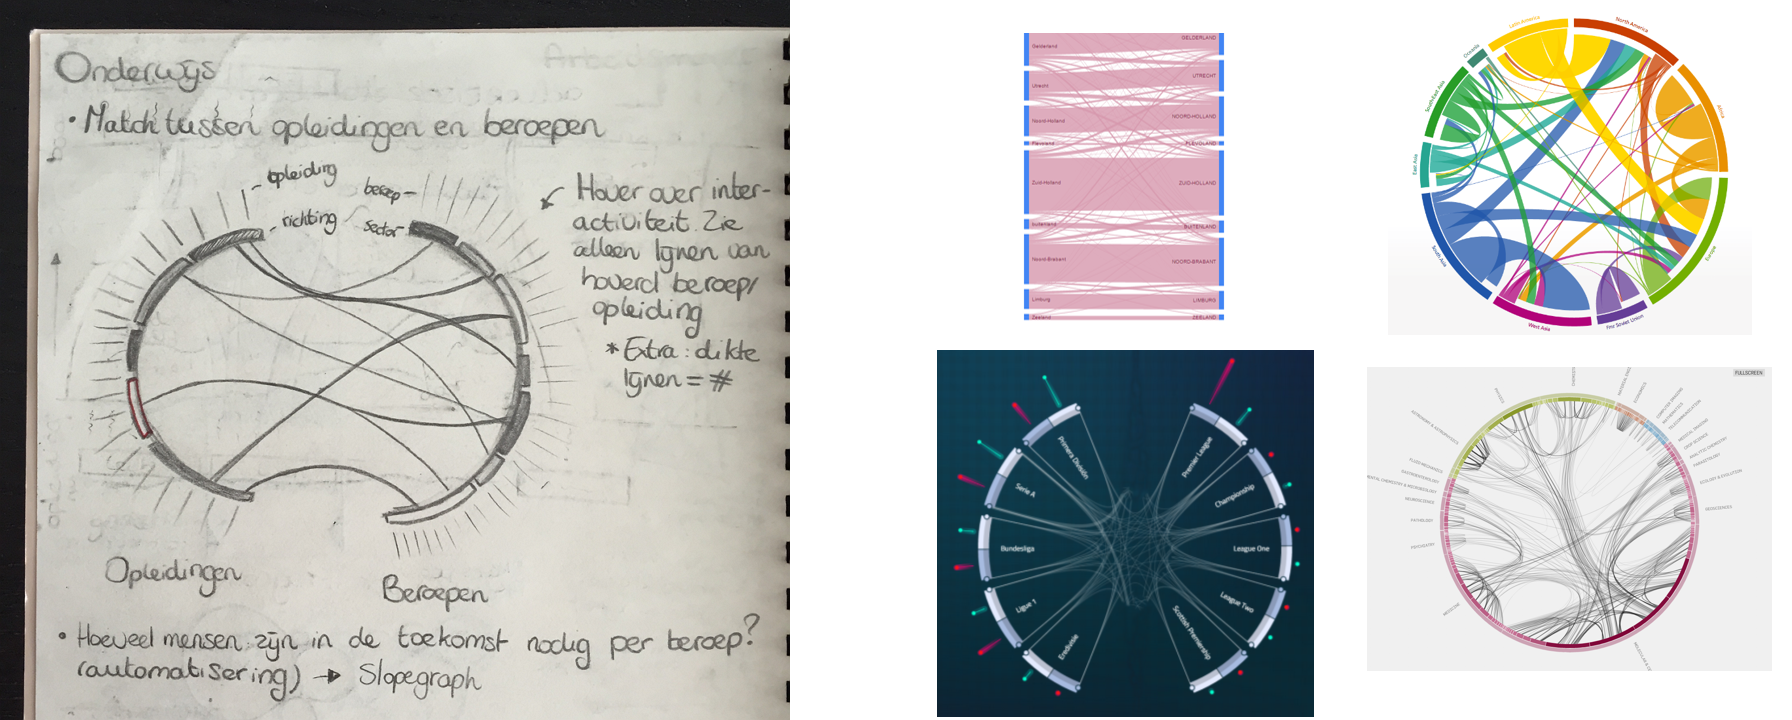 Onderwijs
• Match tussen opleidingen en beroepen
opleiding
richting
beroep
sector
Hover over inter-
activiteit. Zie
alleen lijnen van
hoverd beroep/
opleiding
* Extra: dikte
lijnen = #
Opleidingen
Beroepen
• Hoeveel mensen zijn in de toekomst nodig per beroep?
(automatisering) → Slopegraph
Gelderland
GELDERLAND
Utrecht
UTRECHT
Noord-Holland
NOORD-HOLLAND
Flevoland
FLEVOLAND
Zuid-Holland
ZUID-HOLLAND
Buitenland
BUITENLAND
Noord-Brabant
NOORD-BRABANT
Limburg
LIMBURG
Zeeland
ZEELAND
Latin America
North America
Oceania
Africa
Southeast Asia
East Asia
South Asia
Europe
West Asia
Fmr Soviet Union
Primera División
Premier League
Serie A
Championship
Bundesliga
League One
Ligue 1
League Two
Eredivisie
Scottish Premiership
FULLSCREEN
ASTRONOMY & ASTROPHYSICS
FLUID MECHANICS
GASTROENTEROLOGY
NEUROSCIENCE
PATHOLOGY
PSYCHIATRY
MEDICINE
PARASITOLOGY
ECOLOGY & EVOLUTION